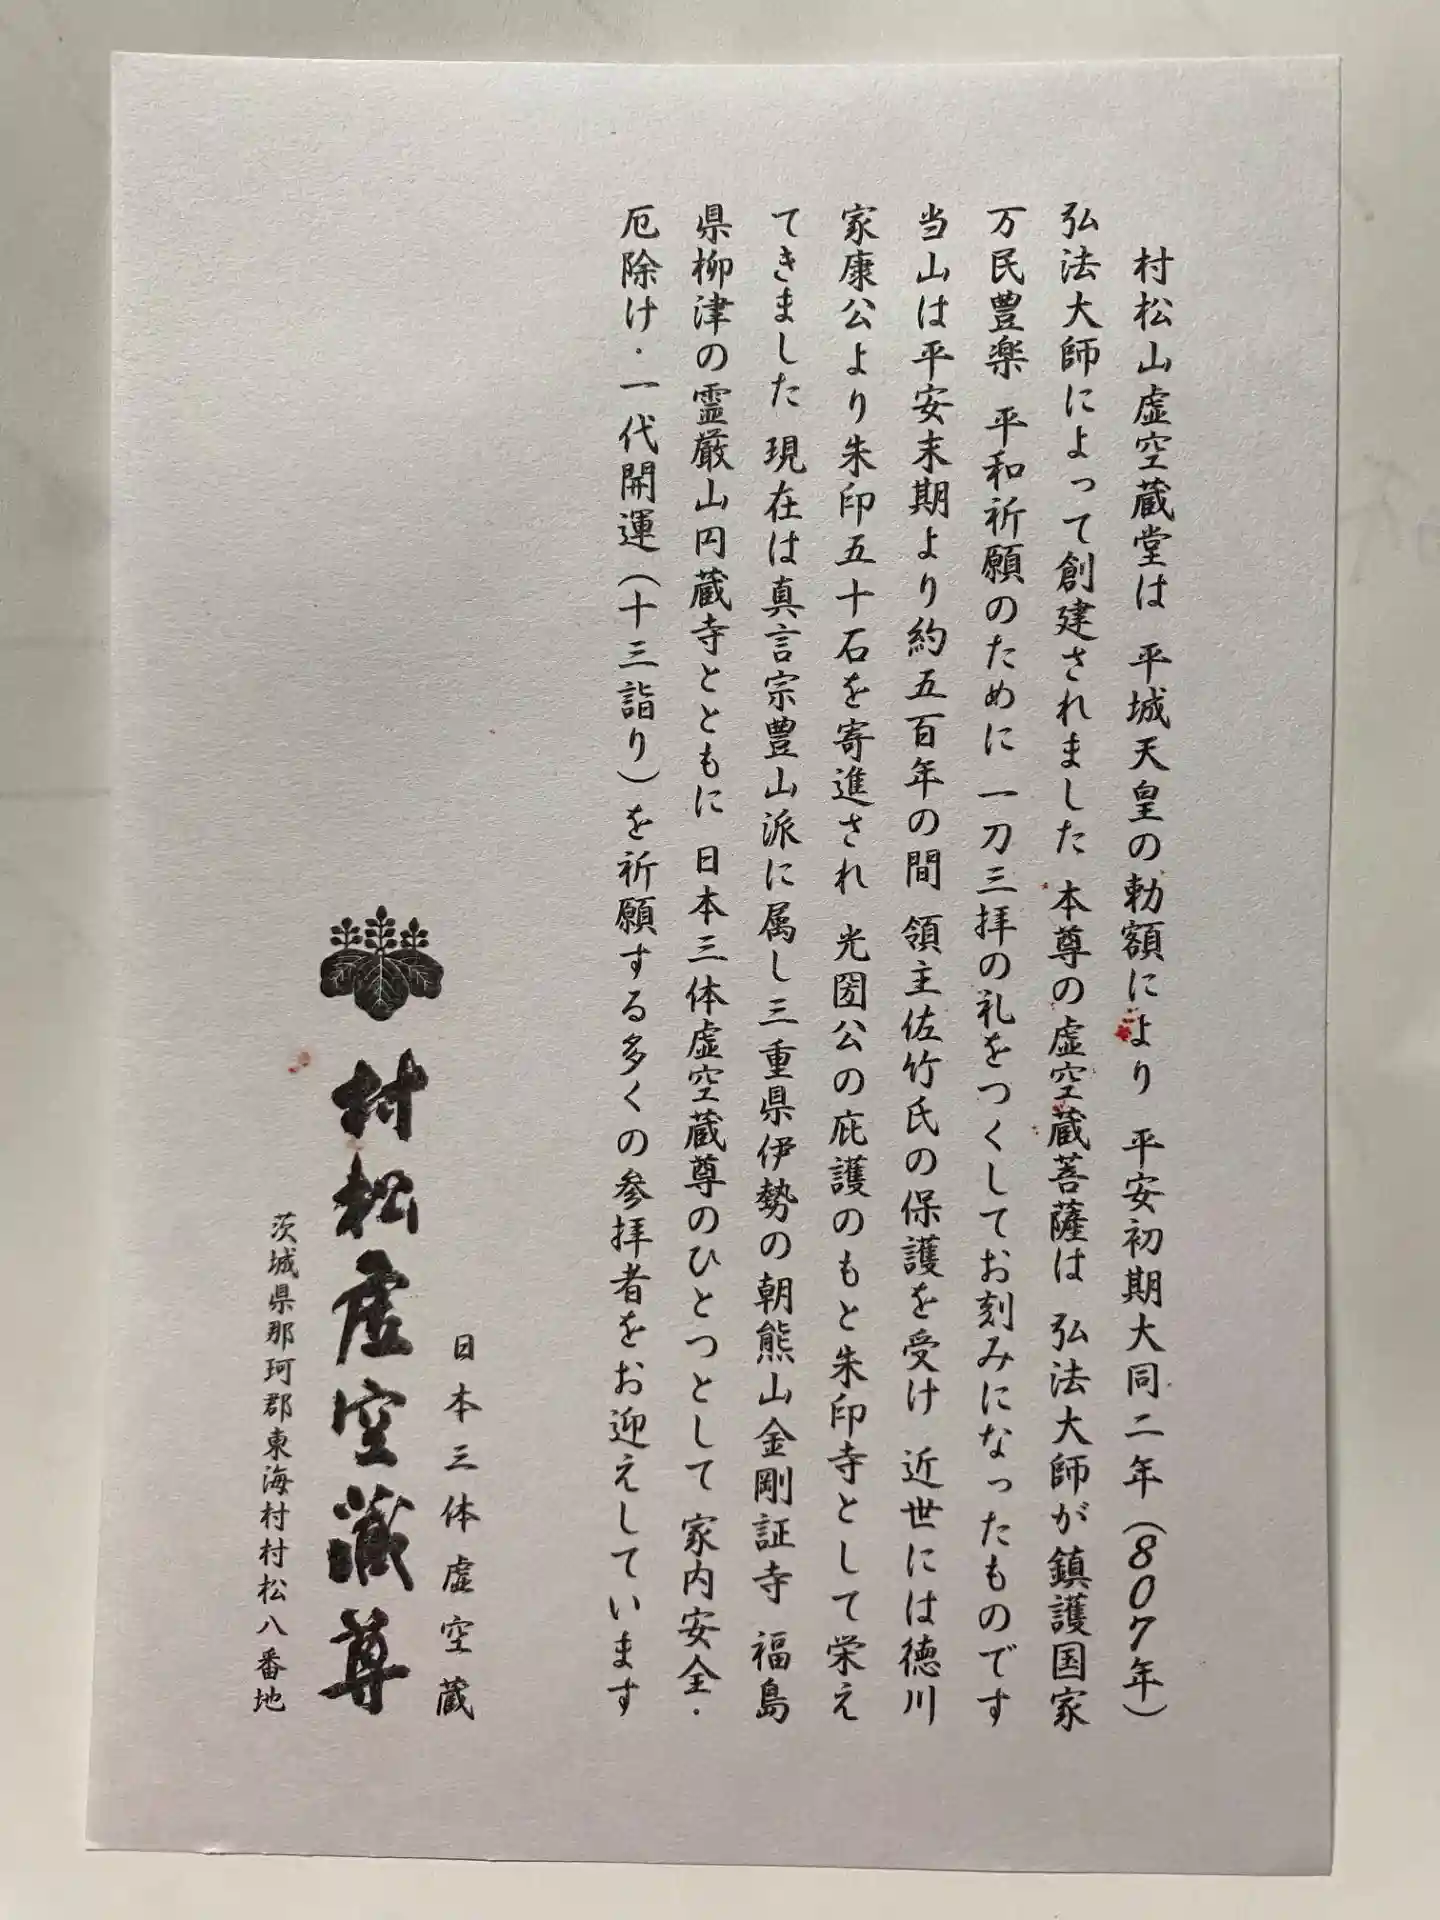 村松山虚空蔵堂は 平城天皇の勅額により 平安初期大同二年（807年）
弘法大師によって創建されました 本尊の虚空蔵菩薩は 弘法大師が鎮護国家
万民豊楽 平和祈願のために一刀三拝の礼をつくしてお刻みになったものです
当山は平安末期より約五百年の間 領主佐竹氏の保護を受け 近世には徳川
家康公より朱印五十石を寄進され 光圀公の庇護のもと朱印寺として栄え
てきました 現在は真言宗豊山派に属し三重県伊勢の朝熊山金剛証寺 福島
県柳津の霊厳山円蔵寺とともに 日本三体虚空蔵尊のひとつとして 家内安全・
厄除け・一代開運（十三詣り）を祈願する多くの参拝者をお迎えしています
日本三体虚空蔵
村松虚空蔵尊
茨城県那珂郡東海村村松八番地